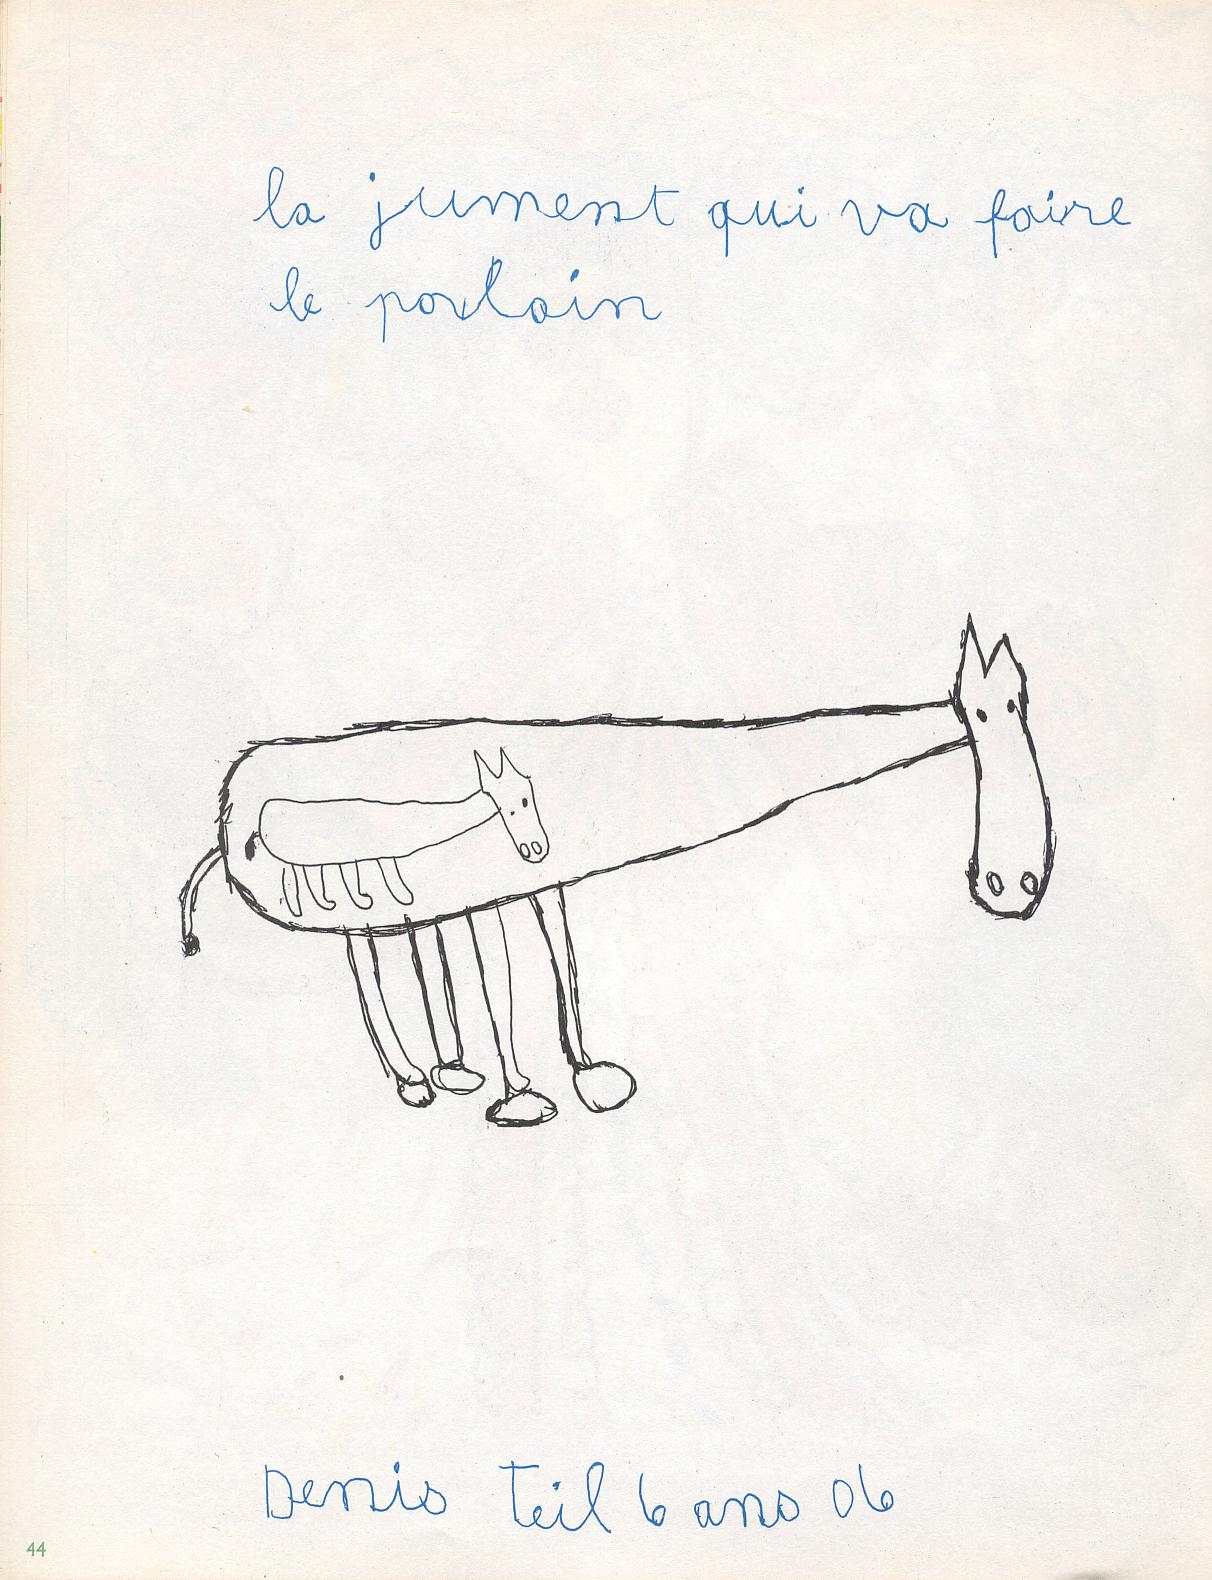 la jument qui va faire
le poulain
Denis Teil 6 ans 06
44